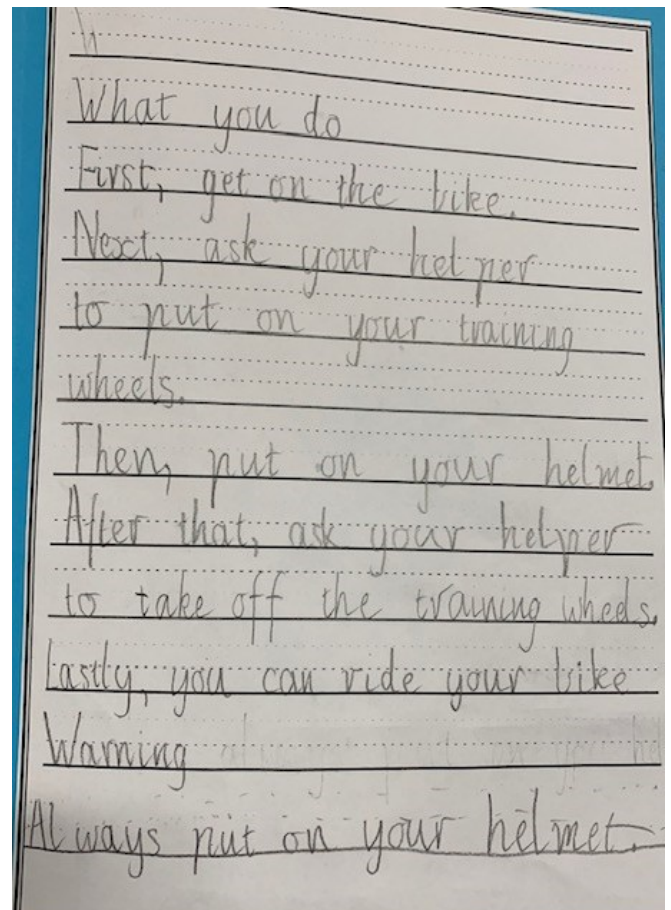 What you do
First, get on the bike.
Next, ask your helper
to put on your training
wheels.
Then, put on your helmet.
After that, ask your helper
to take off the training wheels.
Lastly, you can ride your bike
Warning
Always put on your helmet.